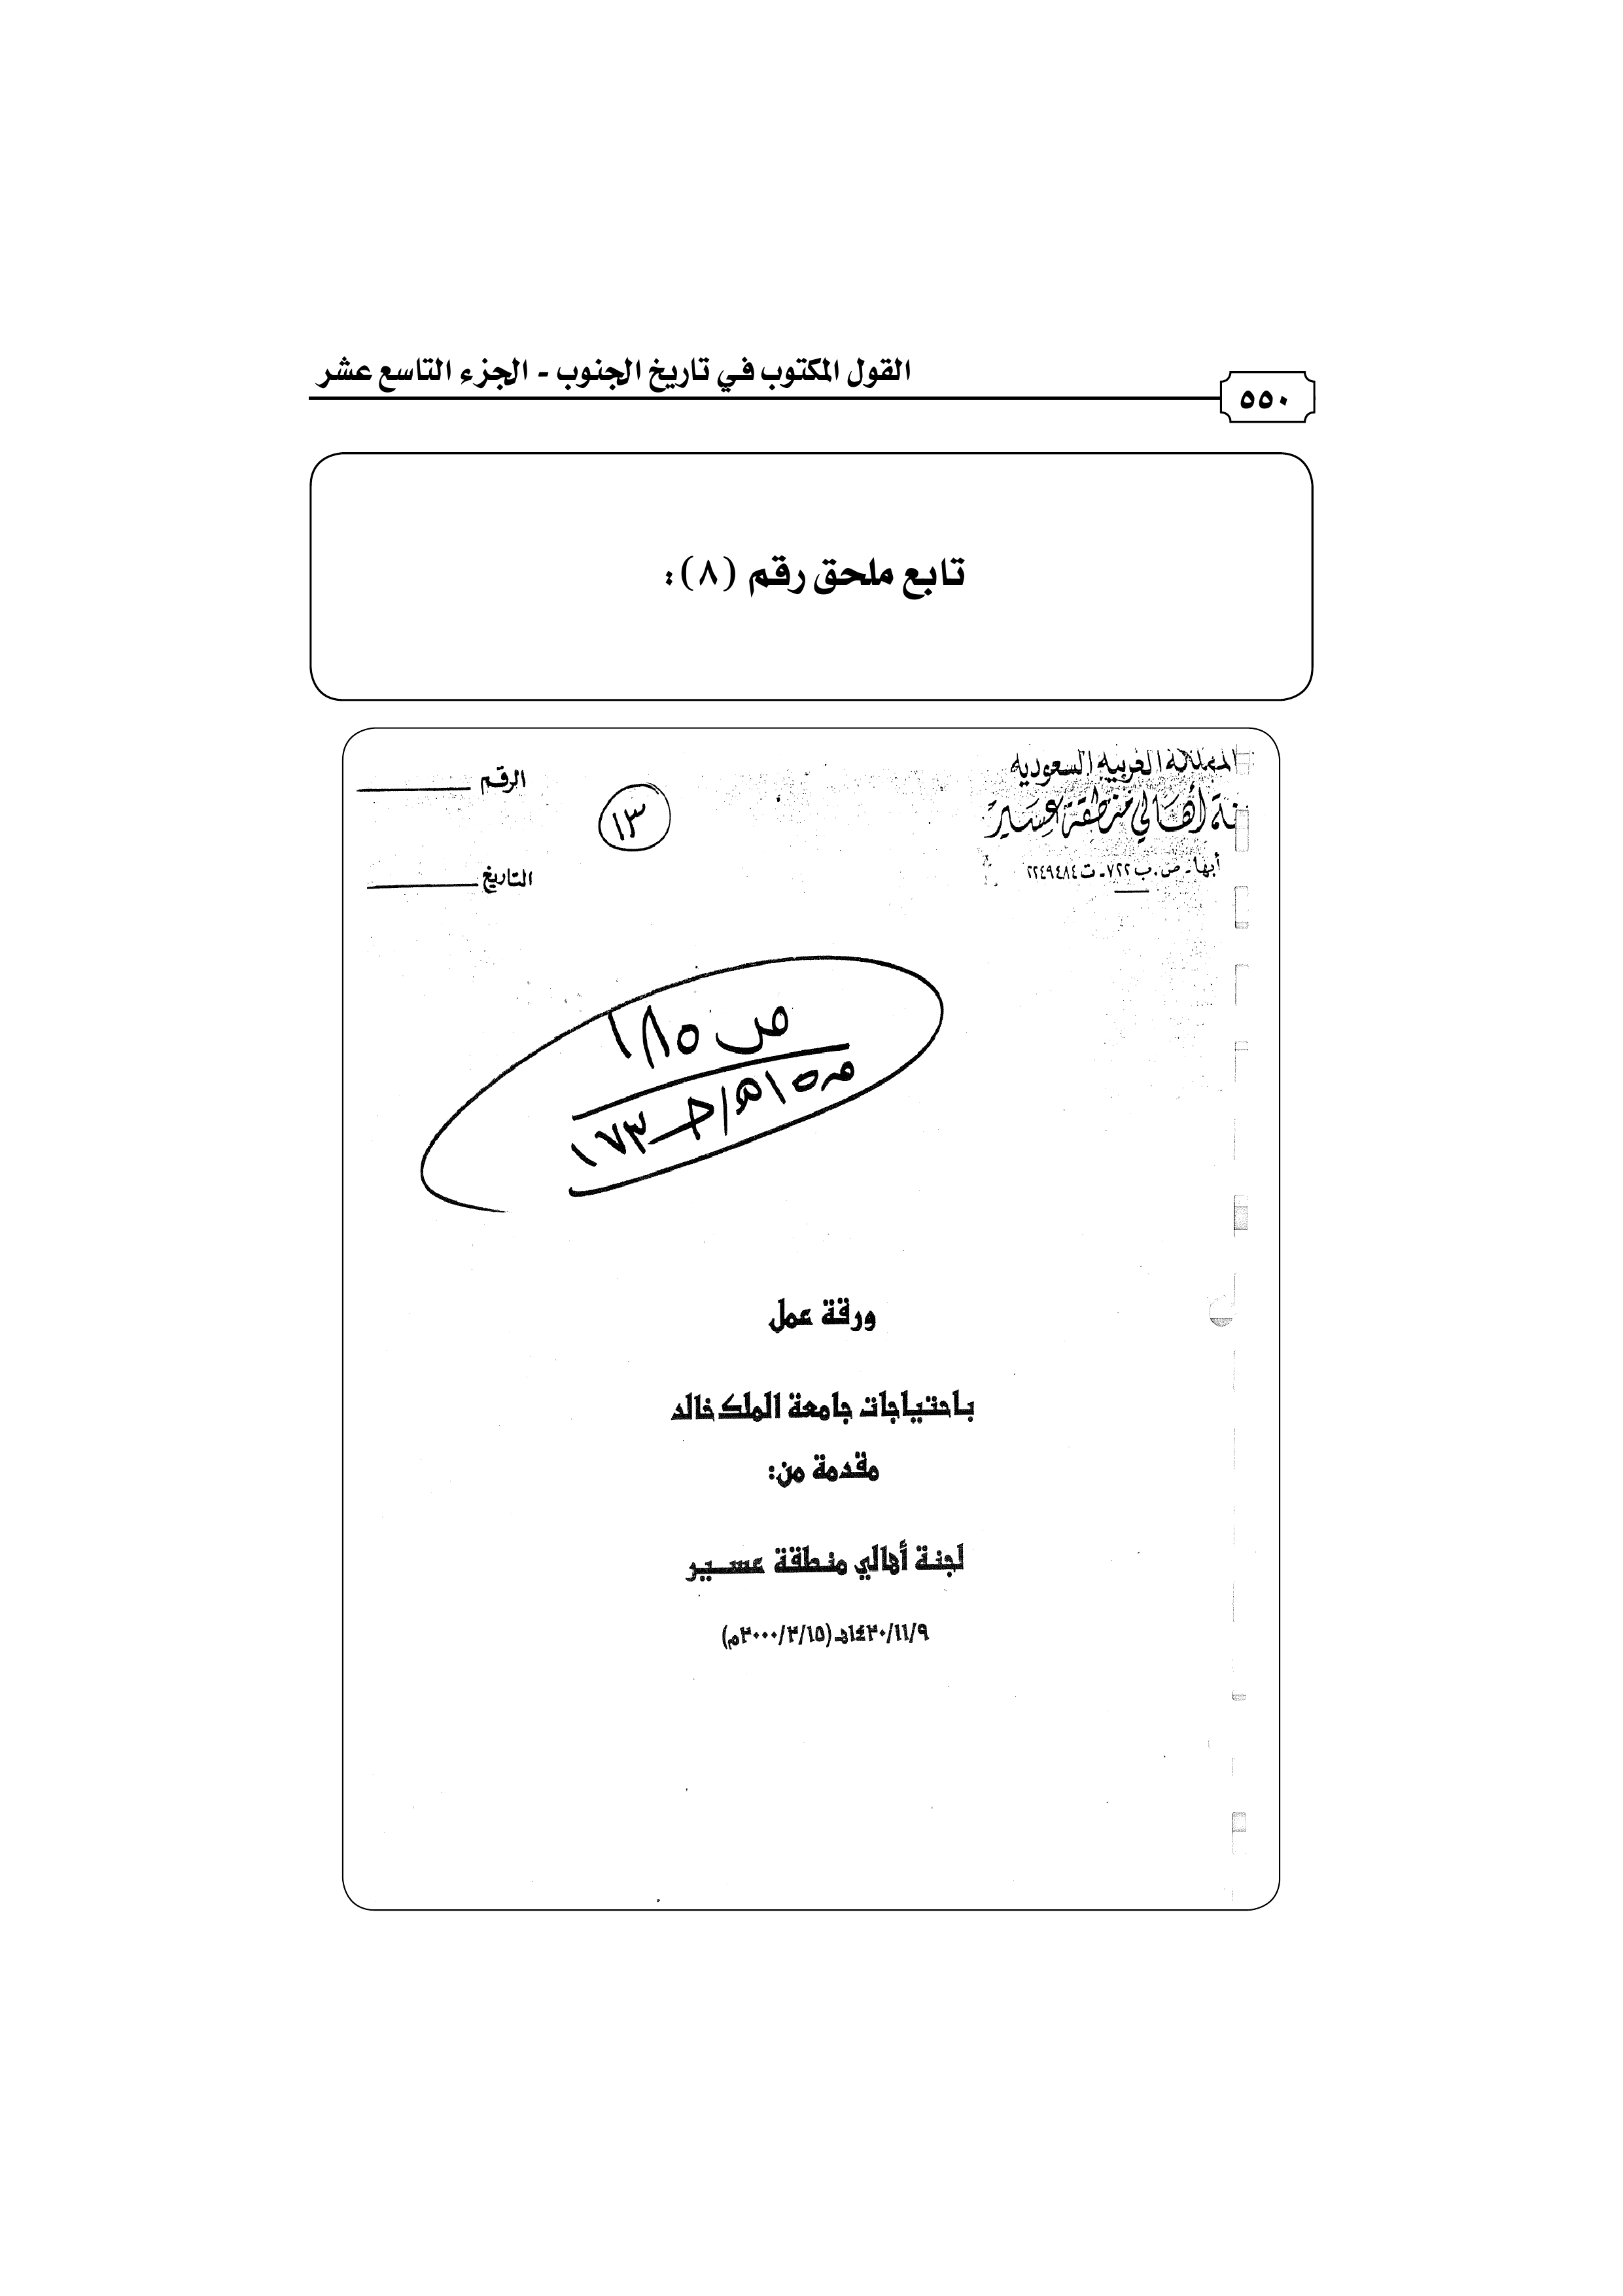 القول المكتوب في تاريخ الجنوب - الجزء التاسع عشر
٥٥٠
تابع ملحق رقم (٨):
المملكة العربية السعودية
ـنة أهالي منطقة عسير
أبها - ص.ب ٧٢٢ - ت ٢٢٤٩٤٨٤
الرقم
١٣
التاريخ
ص ١٨٥
١٧٣
ورقة عمل
باحتياجات جامعة الملك خالد
مقدمة من:
لجنة أهالي منطقة عسير
١٤٢٠/١١/٩هـ (٢٠٠٠/٢/١٥م)